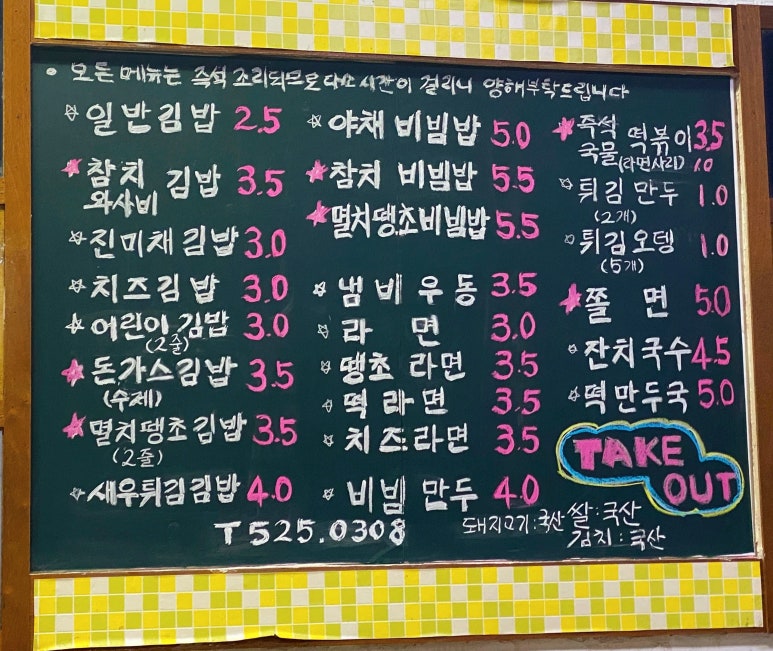 모든 메뉴는 즉석 조리되므로 다소 시간이 걸리니 양해부탁드립니다
일반김밥 2.5
참치 와사비 김밥 3.5
진미채김밥 3.0
치즈김밥 3.0
어린이 김밥 3.0
(2줄)
돈가스김밥 3.5
(수제)
멸치땡초김밥 3.5
(2줄)
새우튀김김밥 4.0
야채 비빔밥 5.0
참치 비빔밥 5.5
멸치땡초비빔밥 5.5
냄비우동 3.5
라면 3.0
땡초라면 3.5
떡라면 3.5
치즈라면 3.5
비빔만두 4.0
즉석 국물 떡볶이 3.5
(라면사리) 1.0
튀김만두 1.0
(2개)
튀김오뎅 1.0
(5개)
쫄면 5.0
잔치국수 4.5
떡만두국 5.0
TAKE
OUT
T 525.0308
돼지고기:국산 쌀:국산
김치:국산